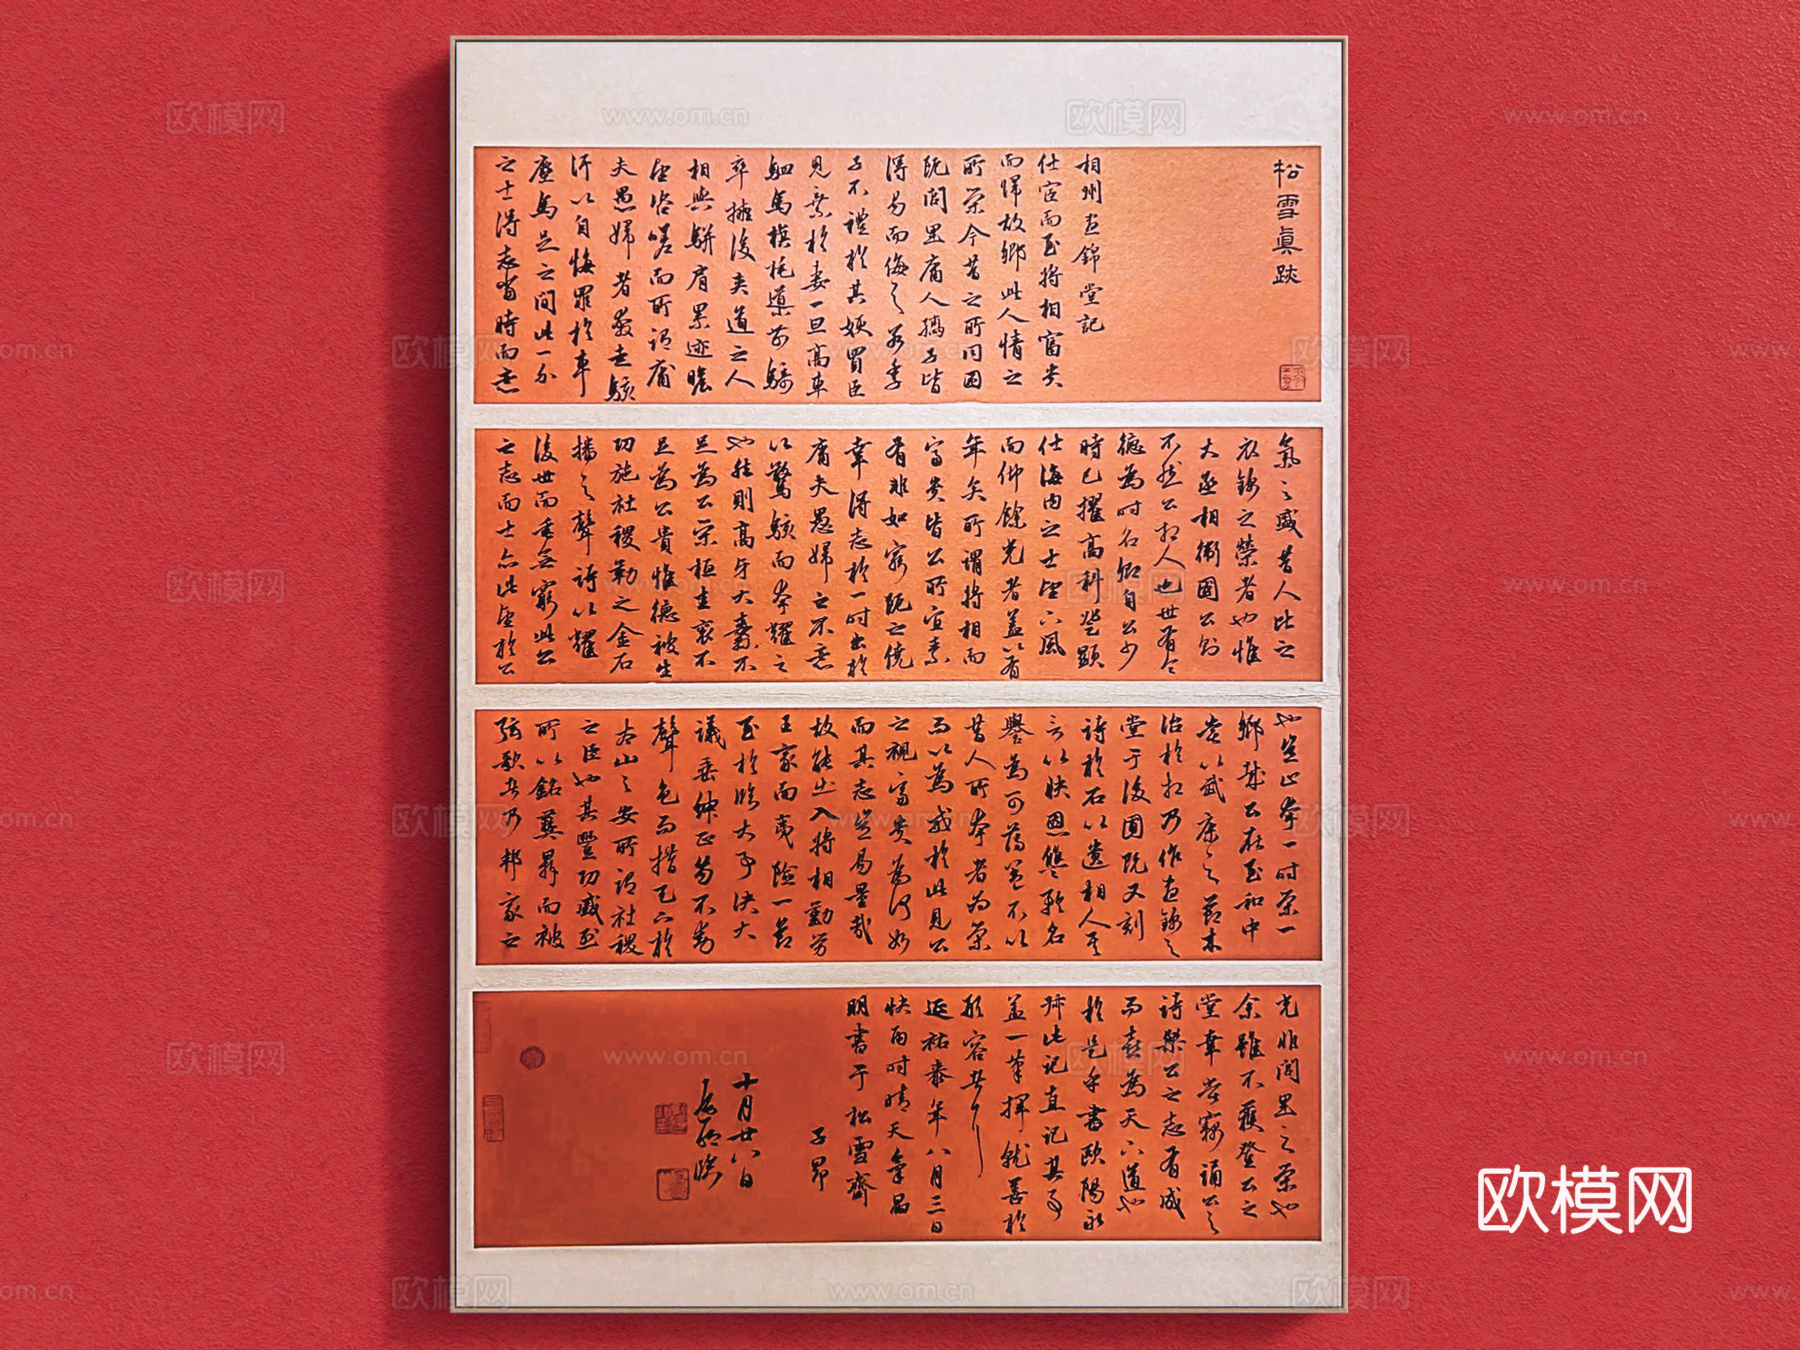 松雪真跡
相州晝錦堂記
仕宦而至將相富貴
而歸故鄉此人情之
所榮今昔之所同困
阨閭里庸人孺子皆
得易而侮之若季
子不禮於其嫂買臣
見棄於妻一旦高車
駟馬旗旄導前騎
卒擁後夾道之人
相與駢肩累迹瞻
望咨嗟而所謂庸
夫愚婦者奔走駭
汗以自悔罪於車
塵馬足之間此一介
之士得志當時而意
氣之盛昔人比之
衣錦之榮者也惟
大丞相衛國公則
不然公相人也世有令
德為時名卿自公少
時已擢高科登顯
仕海內之士望下風
而仰餘光者蓋亦有
年矣所謂將相而
富貴皆公所宜素
有非如窮阨之僥
幸得志於一時出於
庸夫愚婦之不意
以驚駭而夸耀之
也然則高牙大纛不
足為公榮桓圭袞不
足為公貴惟德被生
功施社稷勒之金石
播之聲詩以耀
後世而垂無窮此公
之志而士亦此望於公
也豈止夸一時榮一
鄉哉公在至和中
嘗以武康之節來
治於相乃作晝錦之
堂于後圃既又刻
詩於石以遺相人其
言以快恩讎矜名
譽為可薄蓋不以
昔人所夸者為榮
而以為戒於此見公
之視富貴為何如
而其志豈易量哉
故能出入將相勤勞
王家而夷險一節
至於臨大事決大
議垂紳正笏不動
聲色而措天下於
太山之安所謂社稷
之臣也其豐功盛烈
所以銘彝鼎而被
弦歌者乃邦家之
光非閭里之榮也
余雖不獲登公之
堂幸嘗竊誦公之
詩樂公之志有成
而喜為天下道也
於是乎書歐陽永
叔此記直記其事
蓋一筆揮就善於
形容者
延祐泰年八月三日
快雨時晴天氣晶
明書于松雪齋
子昂
十月廿八日
欧模网
www.om.cn